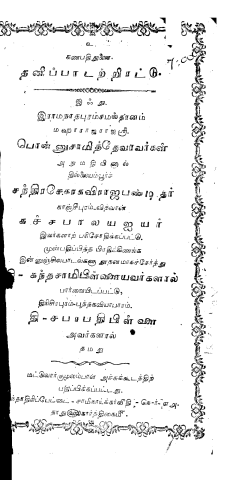 உ
கணபதிதுணை.
தனிப்பாடற்றிரட்டு.
இஃது
இராமநாதபுரம்சமஸ்தானம்
மஹாராஜராஜஸ்ரீ
பொன்னுசாமித்தேவரவர்கள்
அநுமதியினால்
தில்லையம்பூர்ச்
சந்திரசேகரகவிராஜபண்டிதர்
காஞ்சிபுரம்வித்வான்
கச்சபாலயஐயர்
இவர்களாற் பரிசோதிக்கப்பட்டு,
முன்பதிப்பித்த பிரதிக்கிணங்க
இன்னுஞ்சிலபாடல்களுநூதனமாகச்சேர்த்து
தி-கந்தசாமிபிள்ளையவர்களால்
பார்வையிடப்பட்டு,
திரிசிரபுரம்-புத்தகவியாபாரம்.
தி-சபாபதிபிள்ளை
அவர்களால்
தமது
அச்சுக்கூடத்திற்
பதிப்பிக்கப்பட்டது.